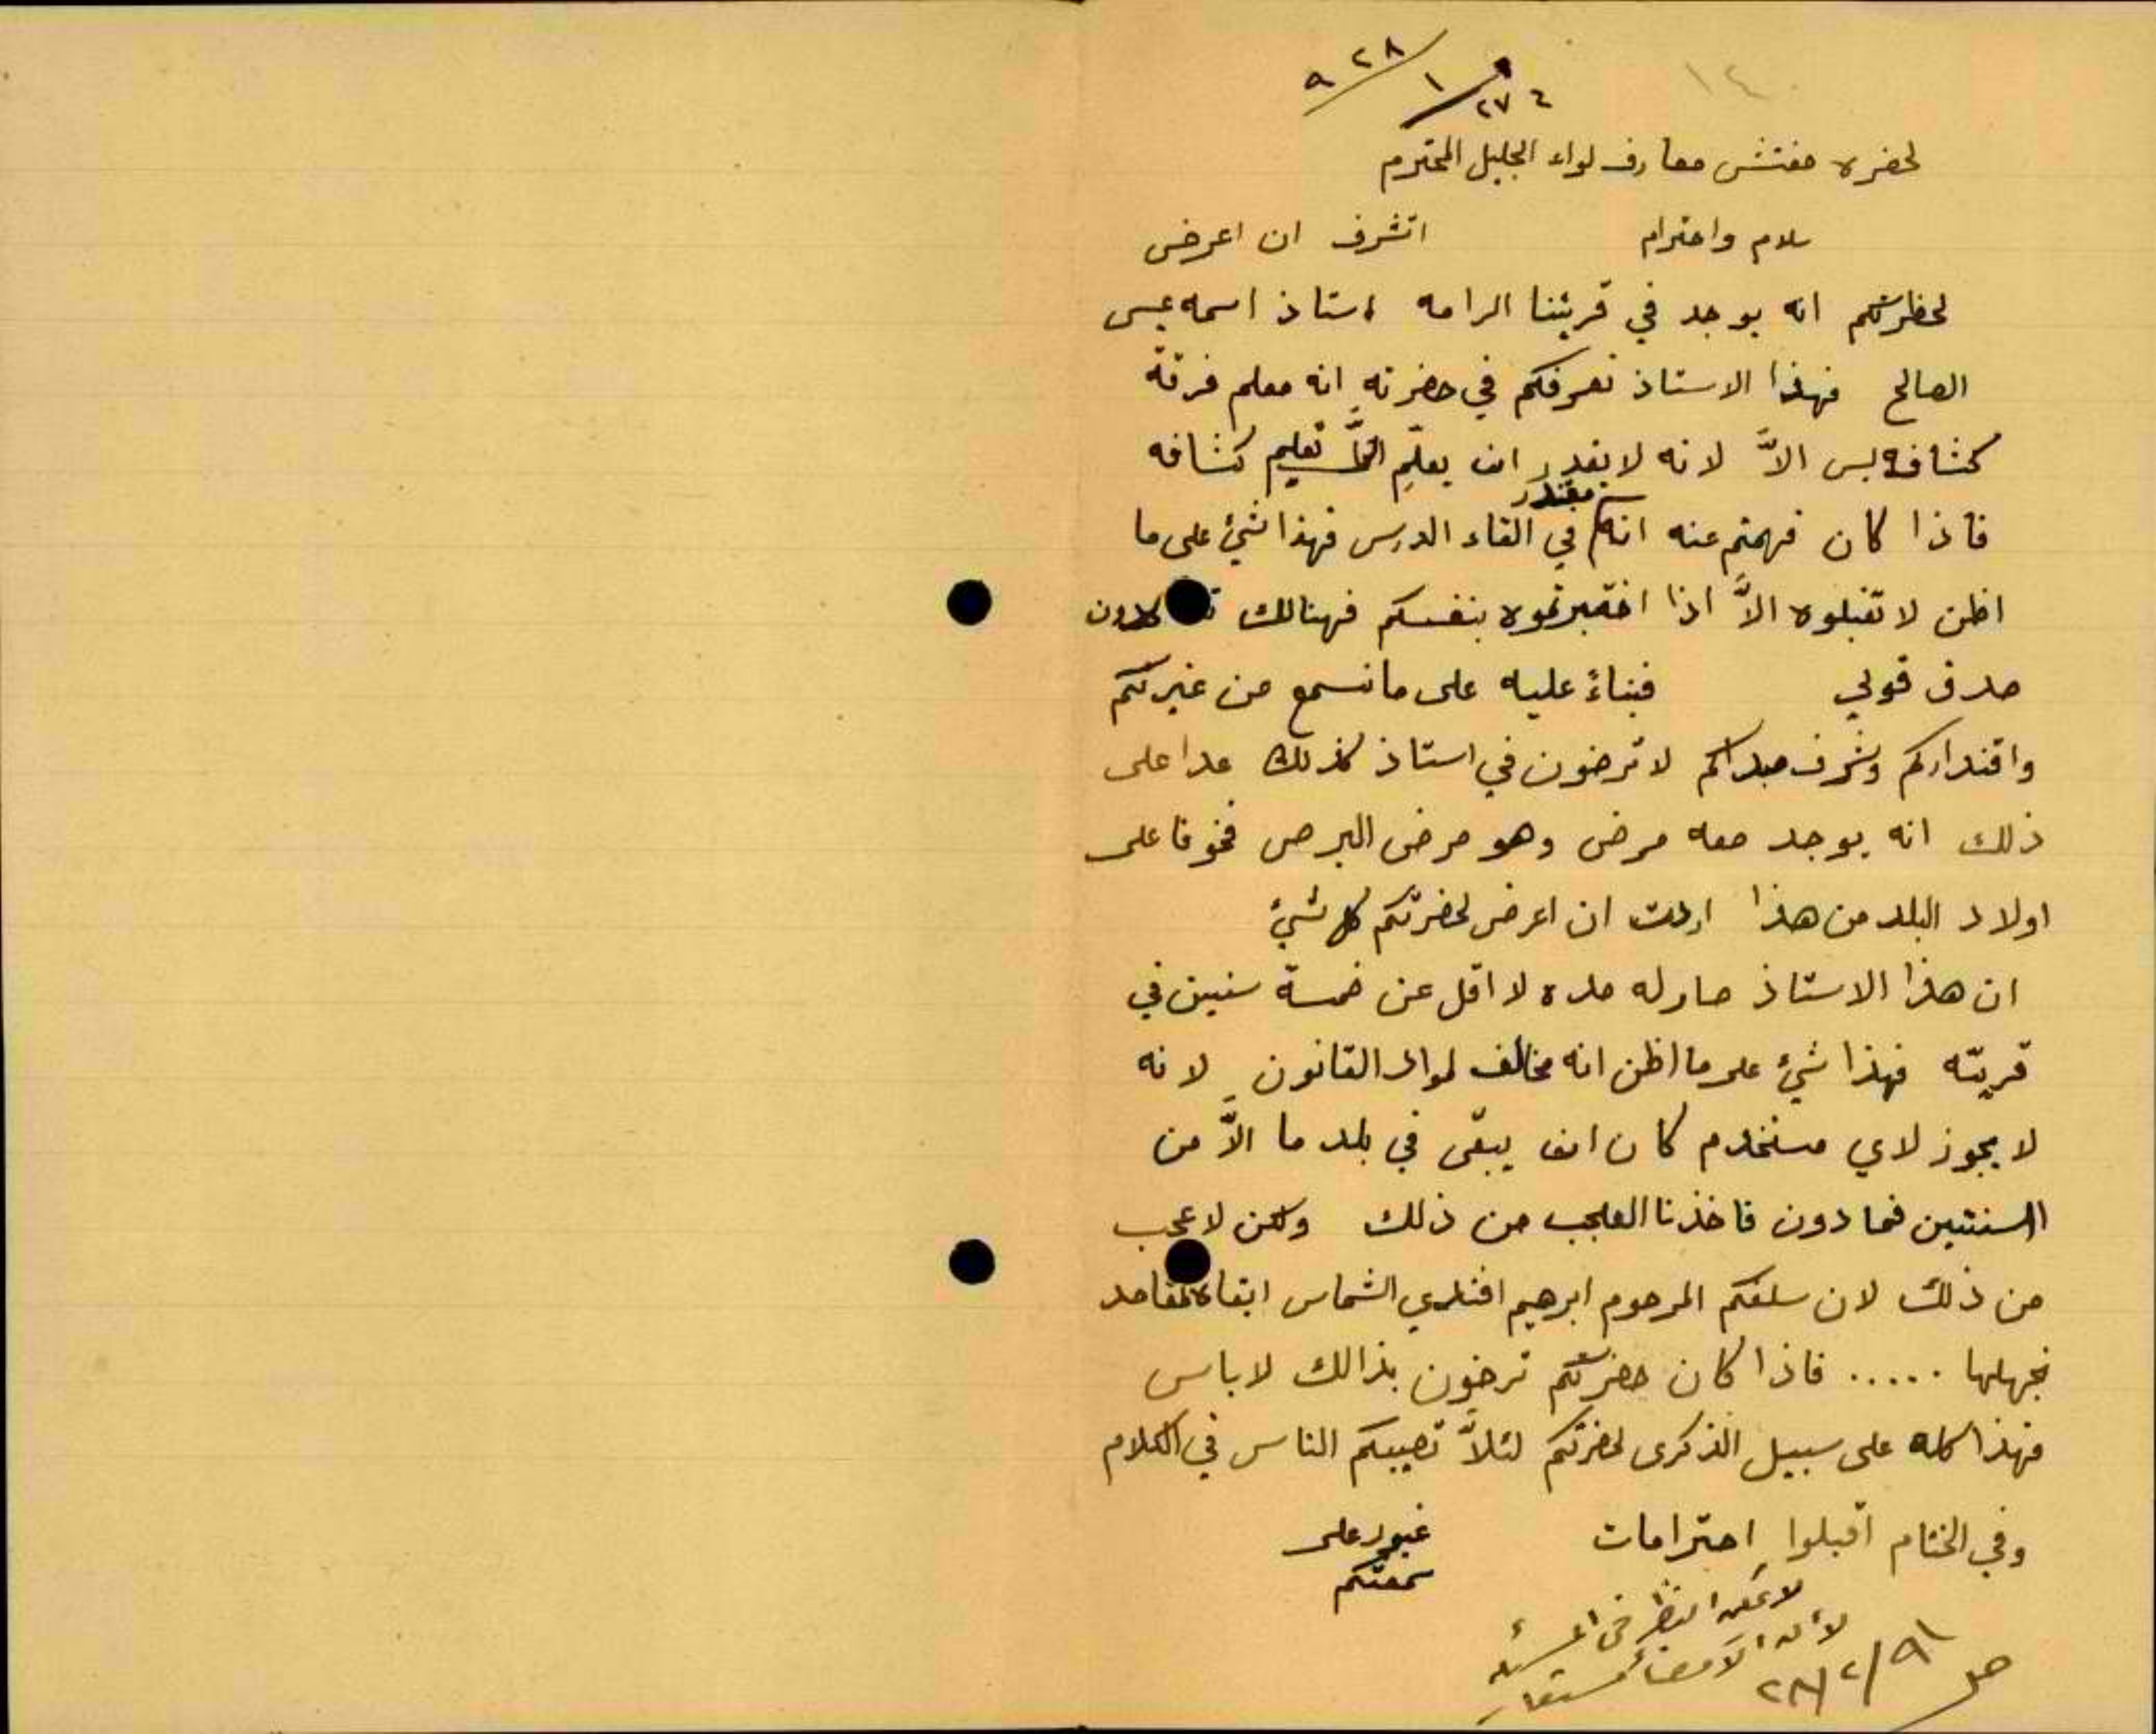 ١٤
٩ ٢٨
١
٢٧ ٤
لحضرة مفتش معارف لواء الجليل المحترم
سلام واحترام اتشرف ان اعرض
لحظرتكم انه يوجد في قريتنا الرامه استاذ اسمه عيسى
الصالح فهذا الاستاذ نعرفكم في حضرته انه معلم فرقة
كشافه بس الاَّ لانه لا يقدر ان يعلّم تعليم كشافه
فاذا كان فهمتم عنه انه مقتدر في القاء الدرس فهذا شيء على ما
اظن لا تقبلوه الاَّ اذا اختبرتموه بنفسكم فهنالك
صدق قولي فبناءً عليه على ما نسمع من غيرتكم
واقتداركم وشرف مبداكم لا ترضون في استاذ كذلك عدا على
ذلك انه يوجد معه مرض وهو مرض البرص فخوفا على
اولاد البلد من هذا اردت ان اعرض لحضرتكم كل شيء
ان هذا الاستاذ صار له مده لا اقل عن خمسة سنين في
قريته فهذا شيء على ما اظن انه مخالف لمواد القانون لانه
لا يجوز لاي مستخدم كان ان يبقى في بلد ما الاَّ من
السنتين فما دون فاخذنا العجب من ذلك ولكن لا عجب
من ذلك لان سلفكم المرحوم ابرهيم افندي الشماس ابقاه لمقاصد
نجهلها ..... فاذا كان حضرتكم ترضون بذالك لا باس
فهذا كله على سبيل الذكرى لحضرتكم لئلاَّ تصيبكم الناس في الكلام
وفي الختام اقبلوا احترامات غيور على
سمعتكم
لا يمكن النظر في المسئله
لأن الامضاء مستعار
٢٨/٢/٩